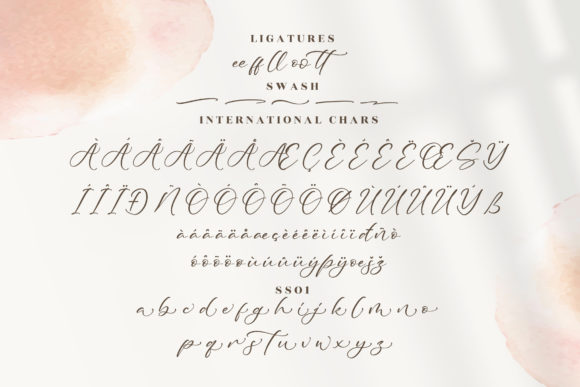 LIGATURES
ee ff ll oo tt
SWASH
INTERNATIONAL CHARS
ÀÁÂÃÄÅÆÇÈÉÊËŒŠŸ
ÍÎÏÐÑÒÓÔÕÖØÙÚÛÜÝß
àáâãäåæçèéêëìíîïđñò
óôõöøùúûüýþÿœšž
SS01
a b c d e f g h i j k l m n o
p q r s t u v w x y z